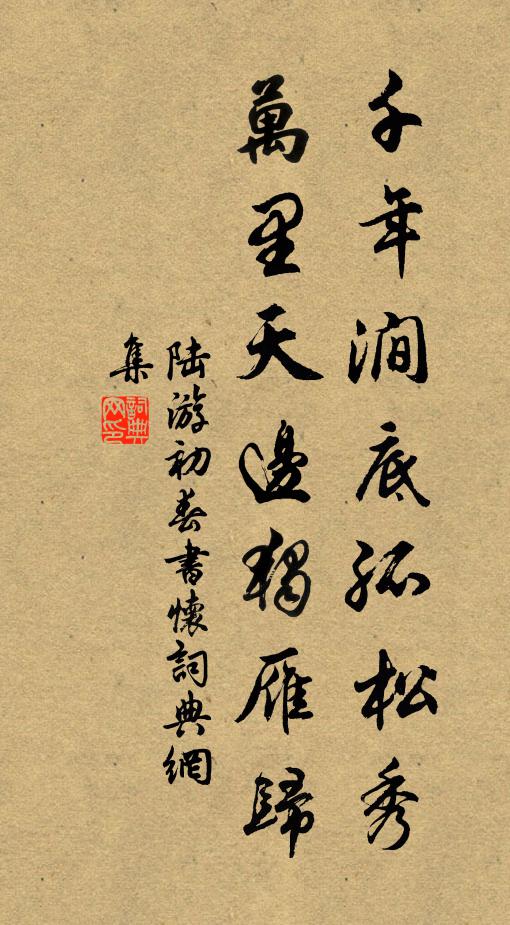 千年澗底孤松秀
萬里天邊獨雁歸
陸游初春書懷詞典網
集
詞典
网印